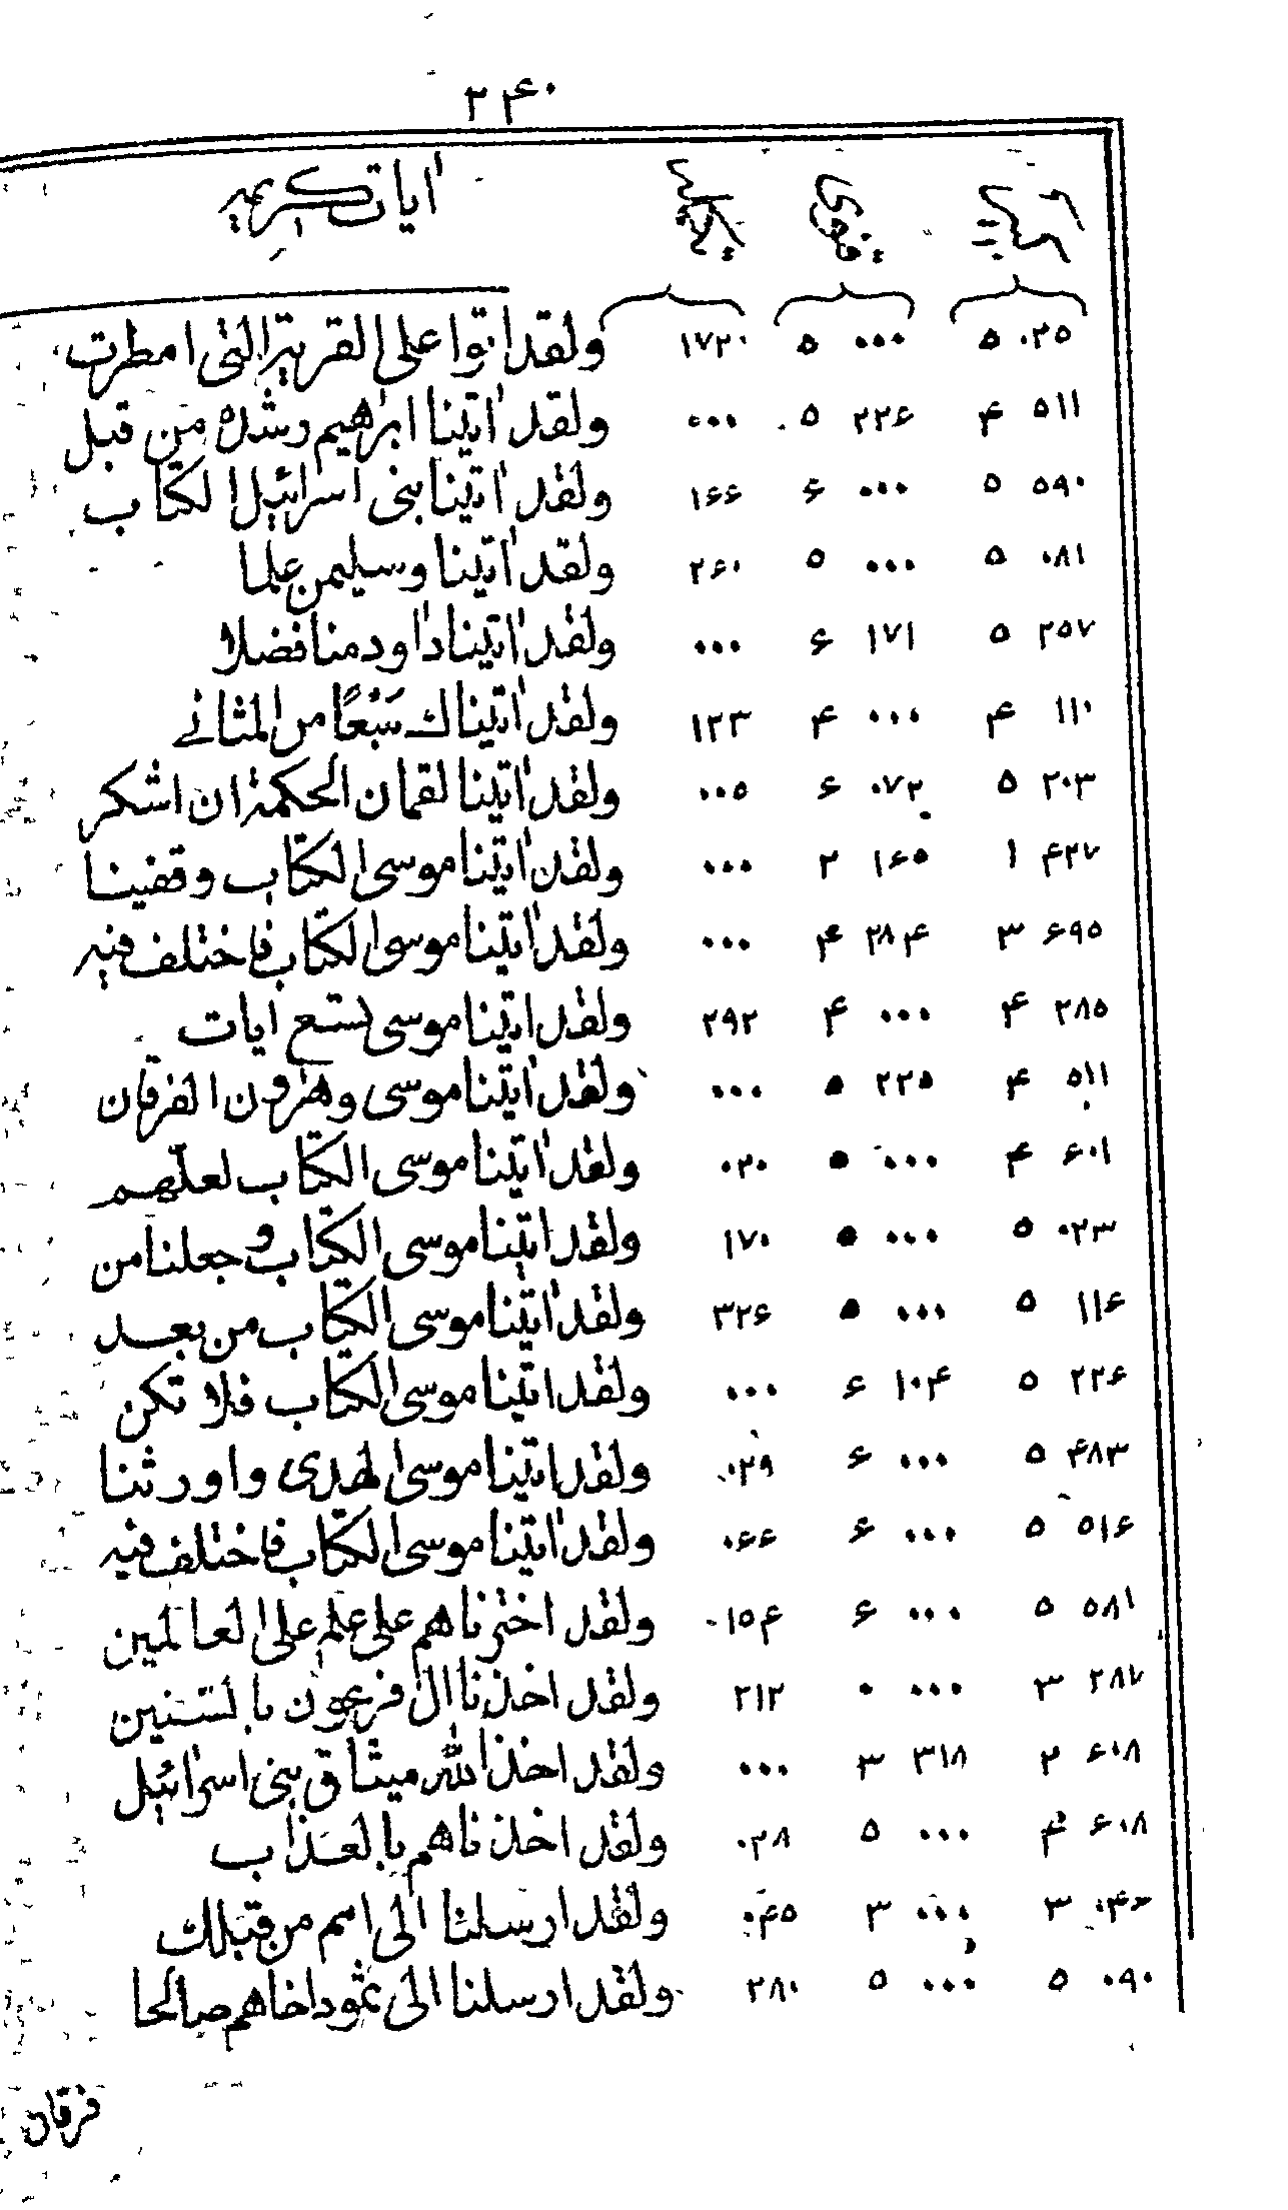 ۲۴۰
اٰیات کریمہ
۰۲۵ ۵ ۰۰۰ ۵ ۱۷۲۰ ولقد اتوا علی القریة التی امطرت
۵۱۱ ۴ ۲۲۶ ۵ ۰۰۰ ولقد اٰتینا ابرٰهیم رشده من قبل
۵۹۰ ۵ ۰۰۰ ۶ ۱۶۶ ولقد اٰتینا بنی اسرائیل الکتاب
۰۸۱ ۵ ۰۰۰ ۵ ۲۶۰ ولقد اٰتینا وسلیمن علما
۲۵۷ ۵ ۱۷۱ ۶ ۰۰۰ ولقد اٰتینا داٰود منا فضلا
۱۱۰ ۴ ۰۰۰ ۴ ۱۲۳ ولقد اٰتیناك سَبْعًا من المثانے
۲۰۳ ۵ ۰۷۲ ۶ ۰۰۵ ولقد اٰتینا لقمان الحکمة ان اشکر
۴۲۷ ۱ ۱۶۵ ۲ ۰۰۰ ولقد اٰتینا موسی الکتاب وقفینا
۶۹۵ ۳ ۲۸۴ ۴ ۰۰۰ ولقد اٰتینا موسی الکتاب فاختلف فیه
۲۸۵ ۴ ۰۰۰ ۴ ۲۹۲ ولقد اٰتینا موسی تسع اٰیات
۵۱۱ ۴ ۲۲۵ ۵ ۰۰۰ ولقد اٰتینا موسی وهٰرون الفرقان
۶۰۱ ۴ ۰۰۰ ۵ ۰۲۰ ولقد اٰتینا موسی الکتاب لعلّهم
۰۲۳ ۵ ۰۰۰ ۵ ۱۷۰ ولقد اٰتینا موسی الکتاب وجعلنا من
۱۱۶ ۵ ۰۰۰ ۵ ۳۲۶ ولقد اٰتینا موسی الکتاب من بعد
۲۲۶ ۵ ۱۰۴ ۶ ۰۰۰ ولقد اٰتینا موسی الکتاب فلا تکن
۴۸۳ ۵ ۰۰۰ ۶ ۰۲۹ ولقد اٰتینا موسی الهدی واورثنا
۵۱۶ ۵ ۰۰۰ ۶ ۰۶۶ ولقد اٰتینا موسی الکتاب فاختلف فیه
۵۸۱ ۵ ۰۰۰ ۶ ۱۵۴ ولقد اخترناهم علی علم علی العالمین
۲۸۷ ۳ ۰۰۰ ۰ ۲۱۲ ولقد اخذنا اٰل فرعون بالسنین
۶۰۸ ۲ ۳۱۸ ۳ ۰۰۰ ولقد اخذ الله میثاق بنی اسرائیل
۶۰۸ ۴ ۰۰۰ ۵ ۰۲۸ ولقد اخذناهم بالعذاب
۳ ۰۰۰ ۳ ۰۴۵ ولقد ارسلنا الی امم من قبلك
۰۹۰ ۵ ۰۰۰ ۵ ۲۸۰ ولقد ارسلنا الی ثمود اخاهم صالحا
فرقان